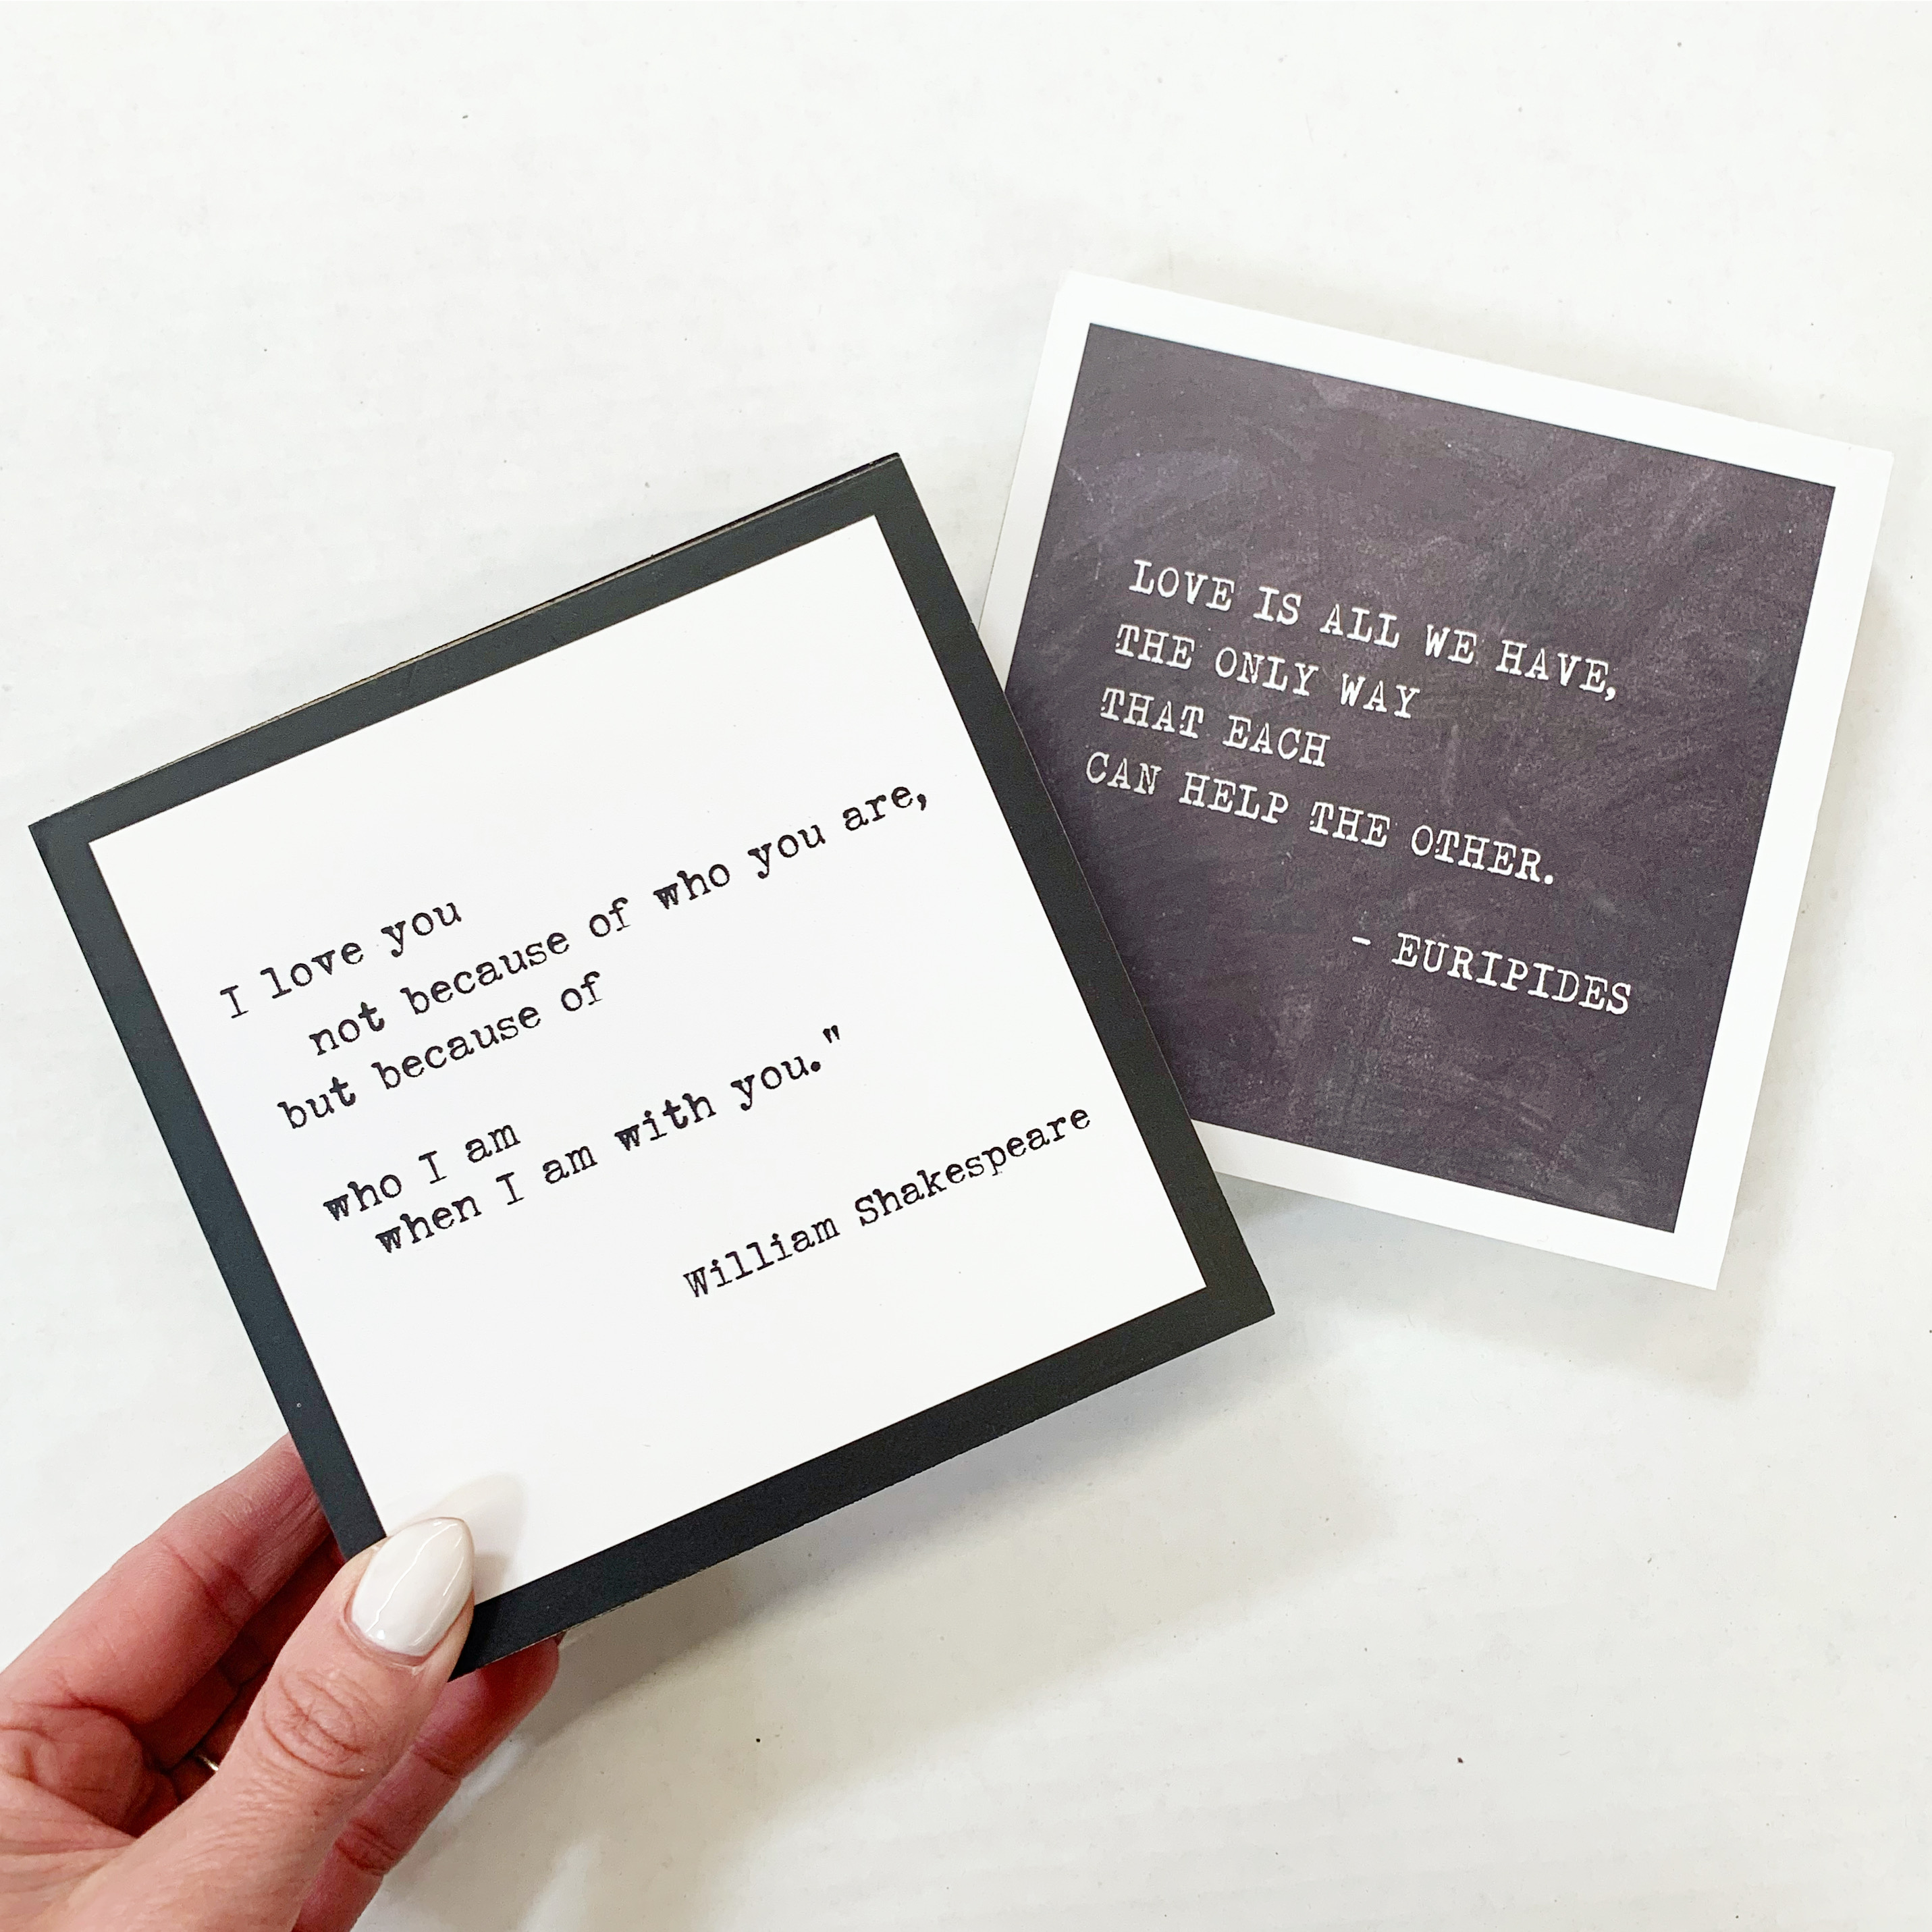 I love you
not because of who you are,
but because of
who I am
when I am with you."
William Shakespeare
LOVE IS ALL WE HAVE,
THE ONLY WAY
THAT EACH
CAN HELP THE OTHER.
- EURIPIDES